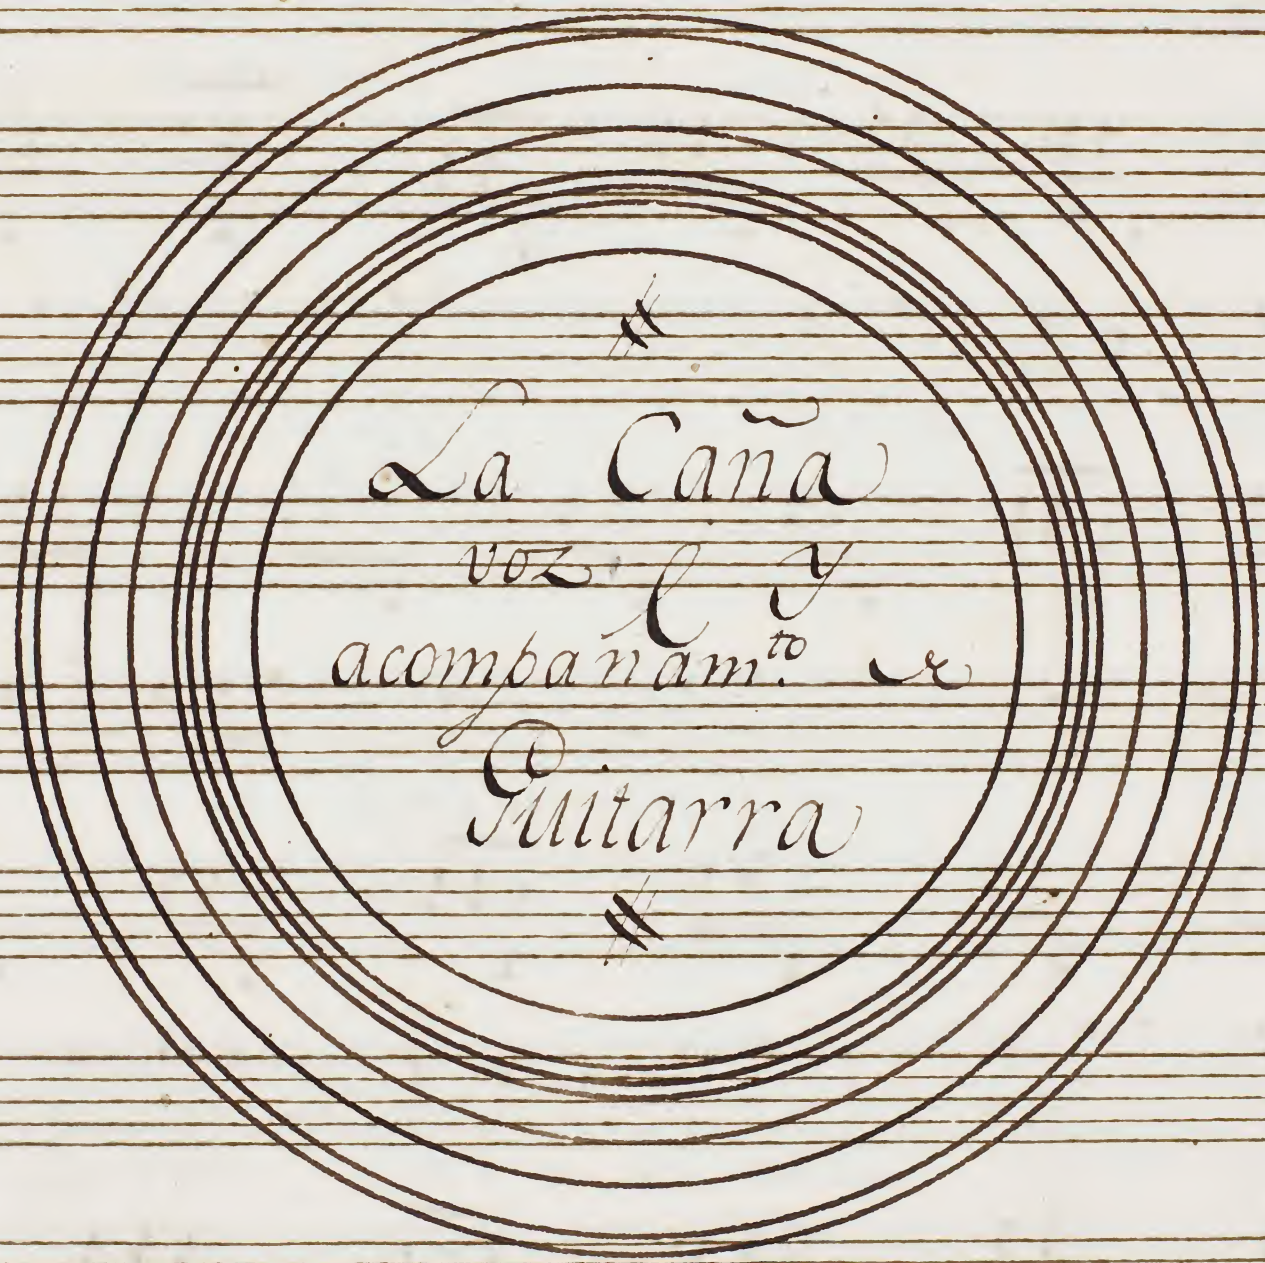 La Caña
voz y
acompañam.to de
Guitarra